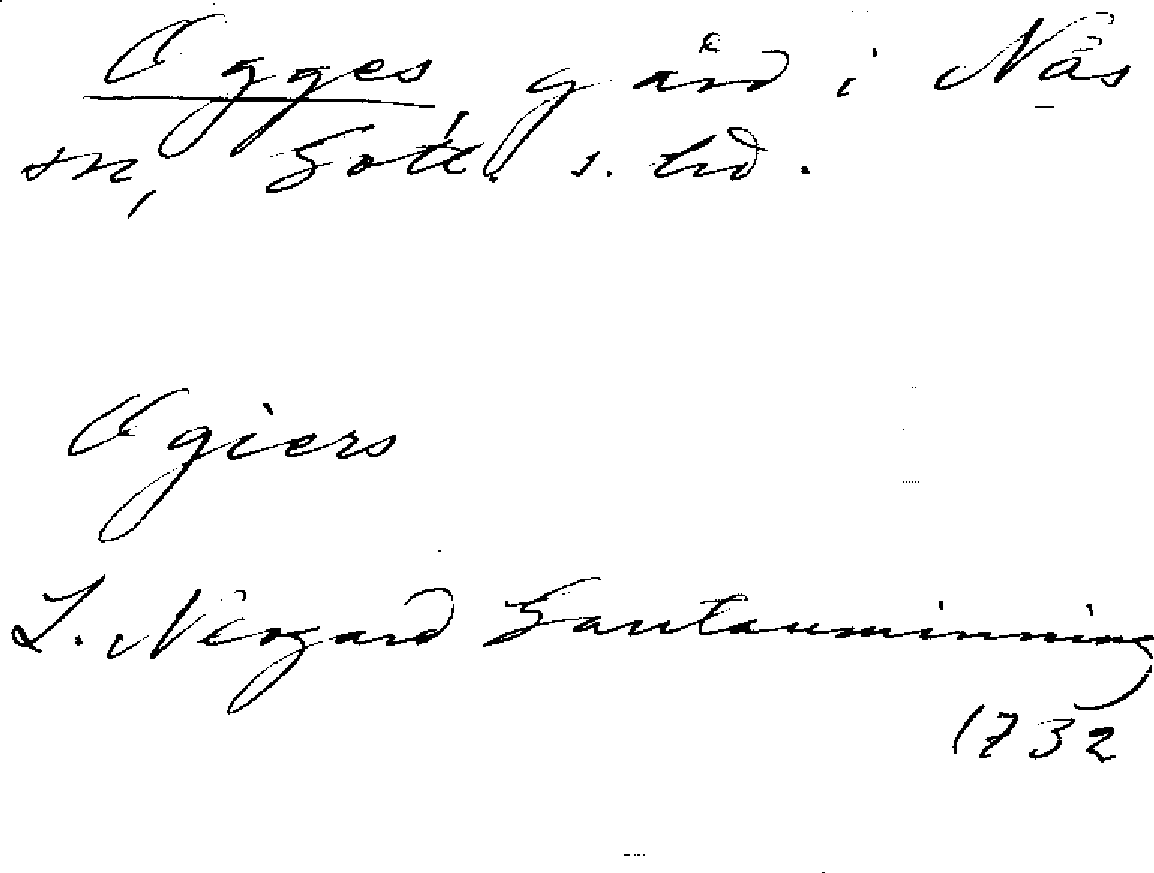 Ogges, gård i Näs
sn, Gotl. s. hd.
Ogiers
L. Neogard Gautauminning
1732